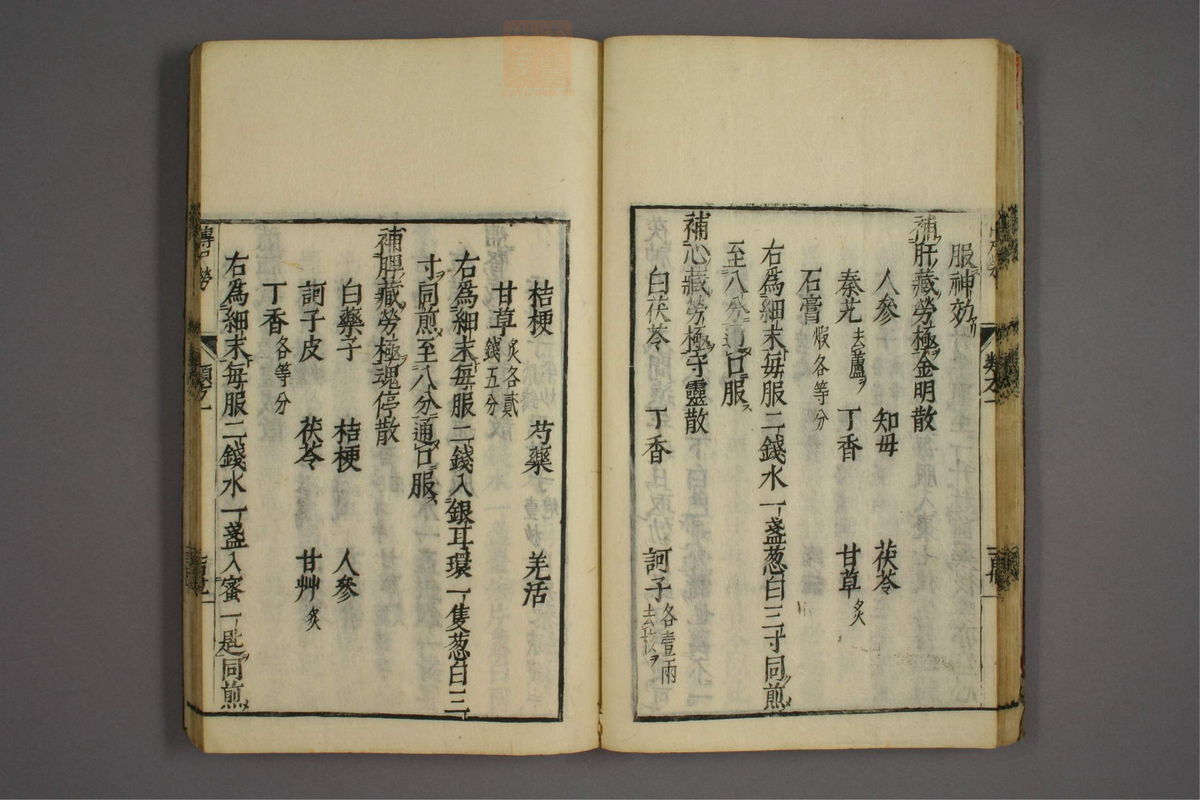 服神効
補肝藏勞極金明散
人參 知母 茯苓
秦艽去蘆ヲ 丁香 甘草炙
石膏煆各等分
右為細末毎服二錢水一盞葱白三寸同煎
至八分通口服
補心藏勞極守靈散
白茯苓 丁香 訶子各壹兩去核ヲ
桔梗 芍藥 羌活
甘草炙各貳錢五分
右為細末毎服二錢入銀耳環一隻葱白三
寸同煎至八分通口服
補脾藏勞極魂停散
白藥子 桔梗 人參
訶子皮 茯苓 甘艸炙
丁香各等分
右為細末毎服二錢水一盞入蜜一匙同煎